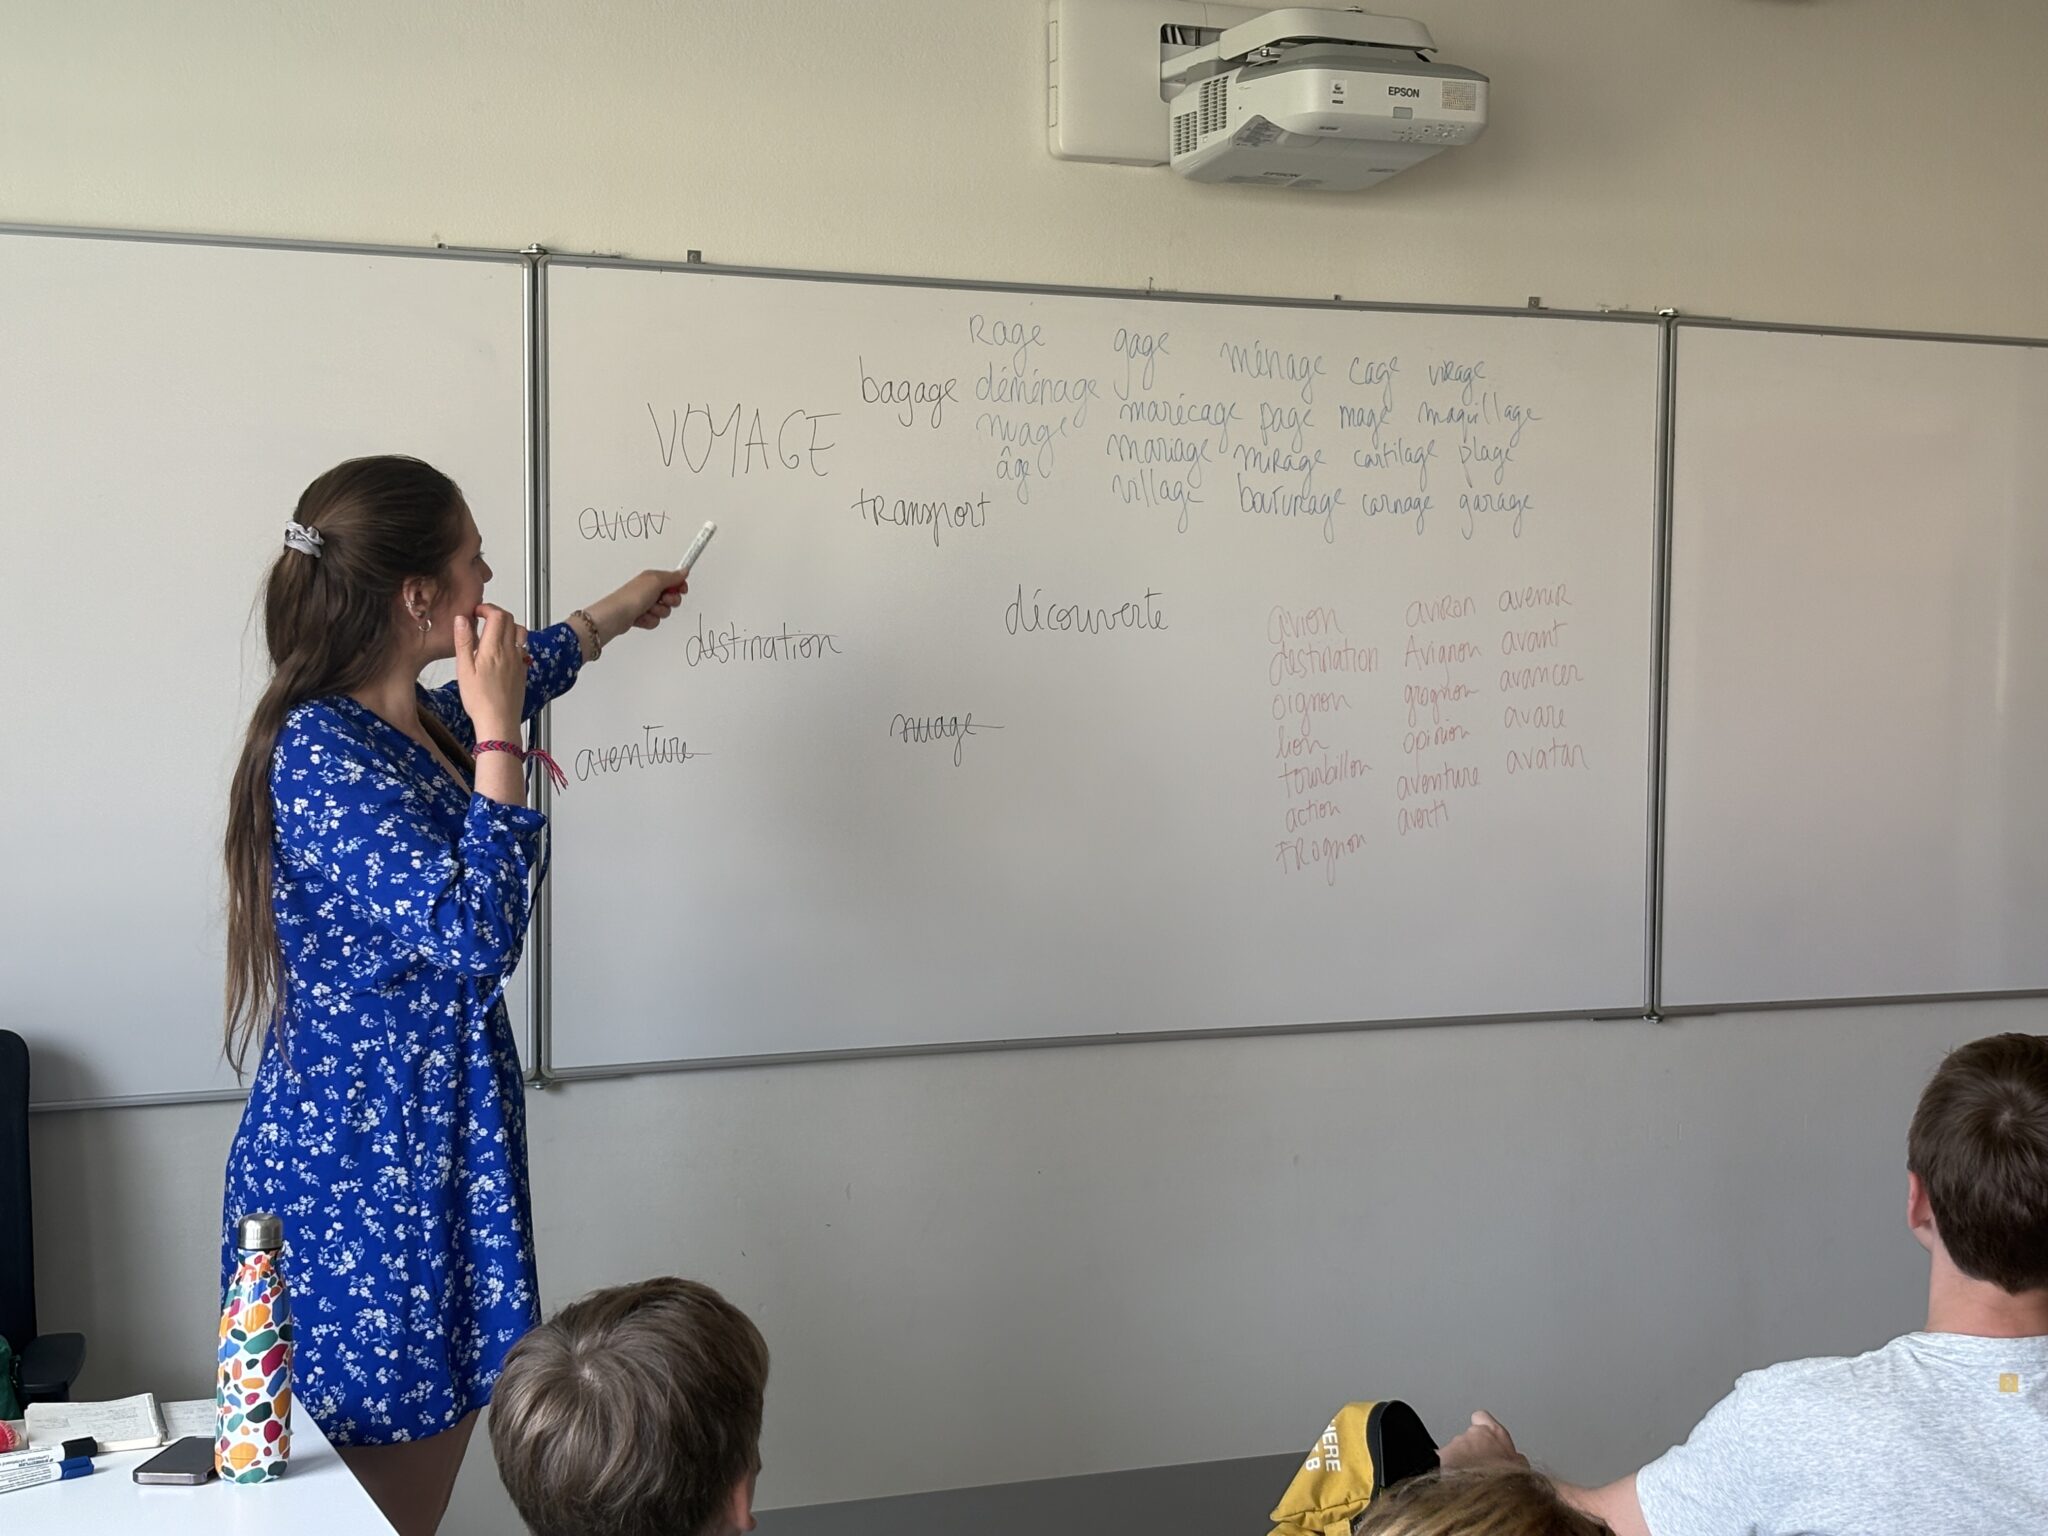 EPSON
EPSON
Rage gage ménage cage virage
bagage déménage marécage page mage maquillage
VOYAGE nuage mariage mirage cartilage plage
âge village carnage garage
avion transport
découverte
destination
aventure nuage
avion aviron avenir
destination Avignon avant
oignon grognon avancer
lion opinion avare
tourbillon aventure avatar
action averti
trognon